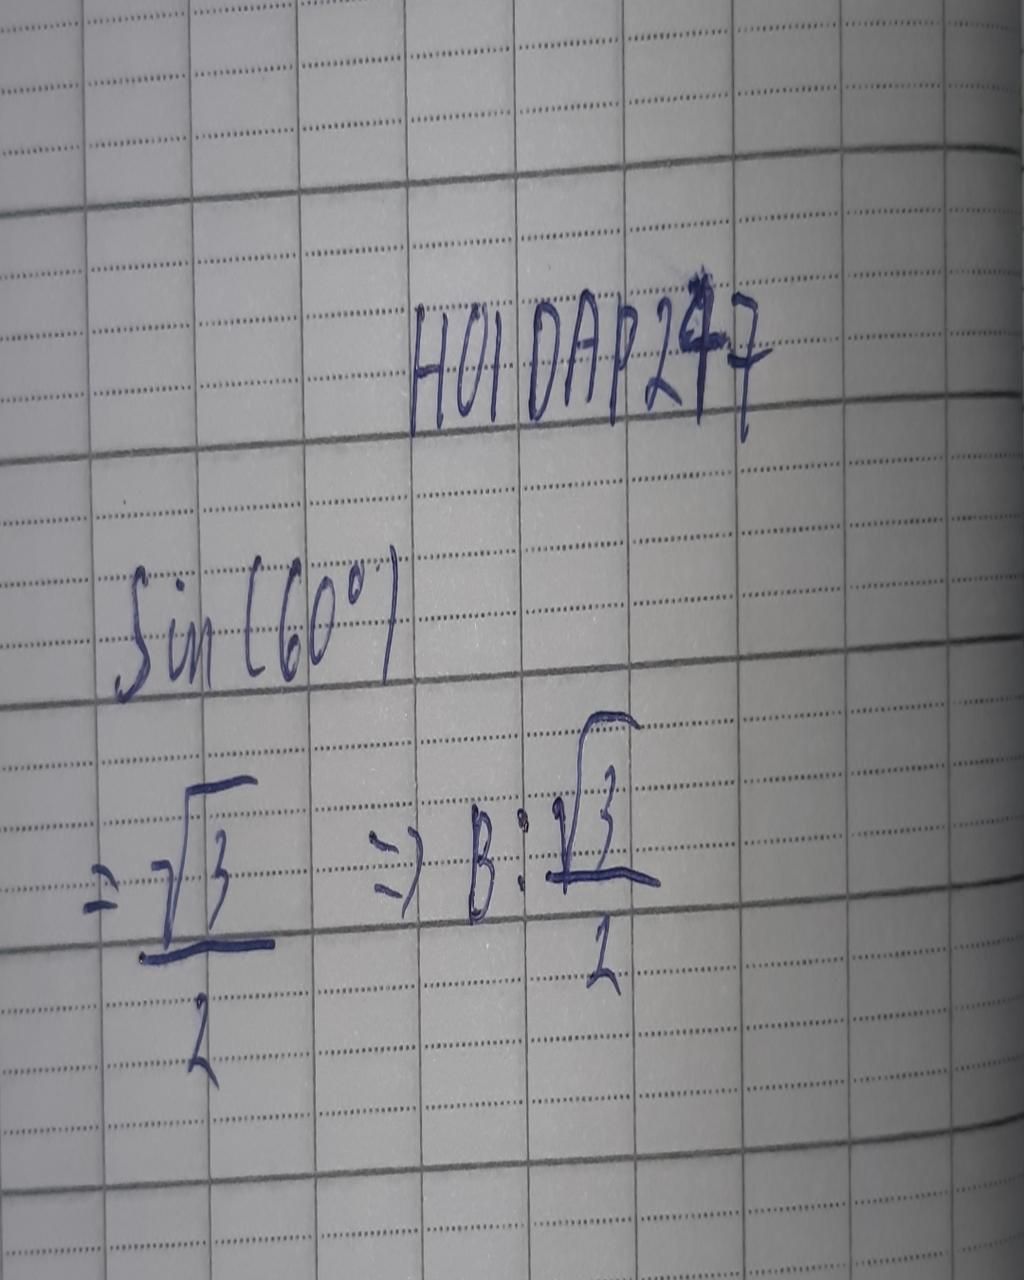 HOIDAP247
Sin(60°)
= √3/2 => B: √3/2